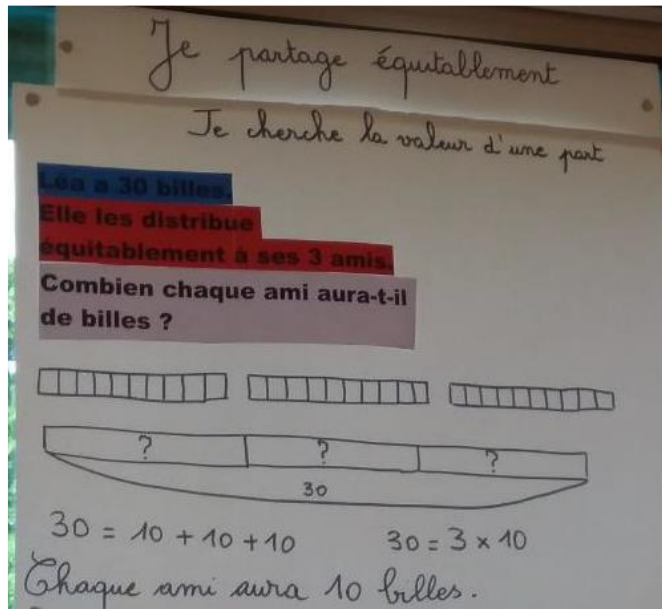 Je partage équitablement
Je cherche la valeur d'une part
Léa a 30 billes.
Elle les distribue
équitablement à ses 3 amis.
Combien chaque ami aura-t-il
de billes ?
? ? ?
30
30 = 10 + 10 + 10 30 = 3 × 10
Chaque ami aura 10 billes.